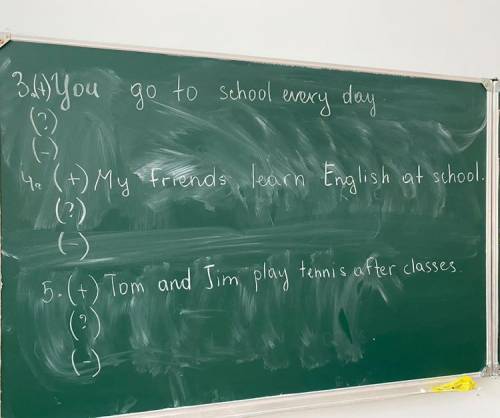 3.(+) You go to school every day.
(?)
(-)
4. (+) My friends learn English at school.
(?)
(-)
5. (+) Tom and Jim play tennis after classes.
(?)
(-)